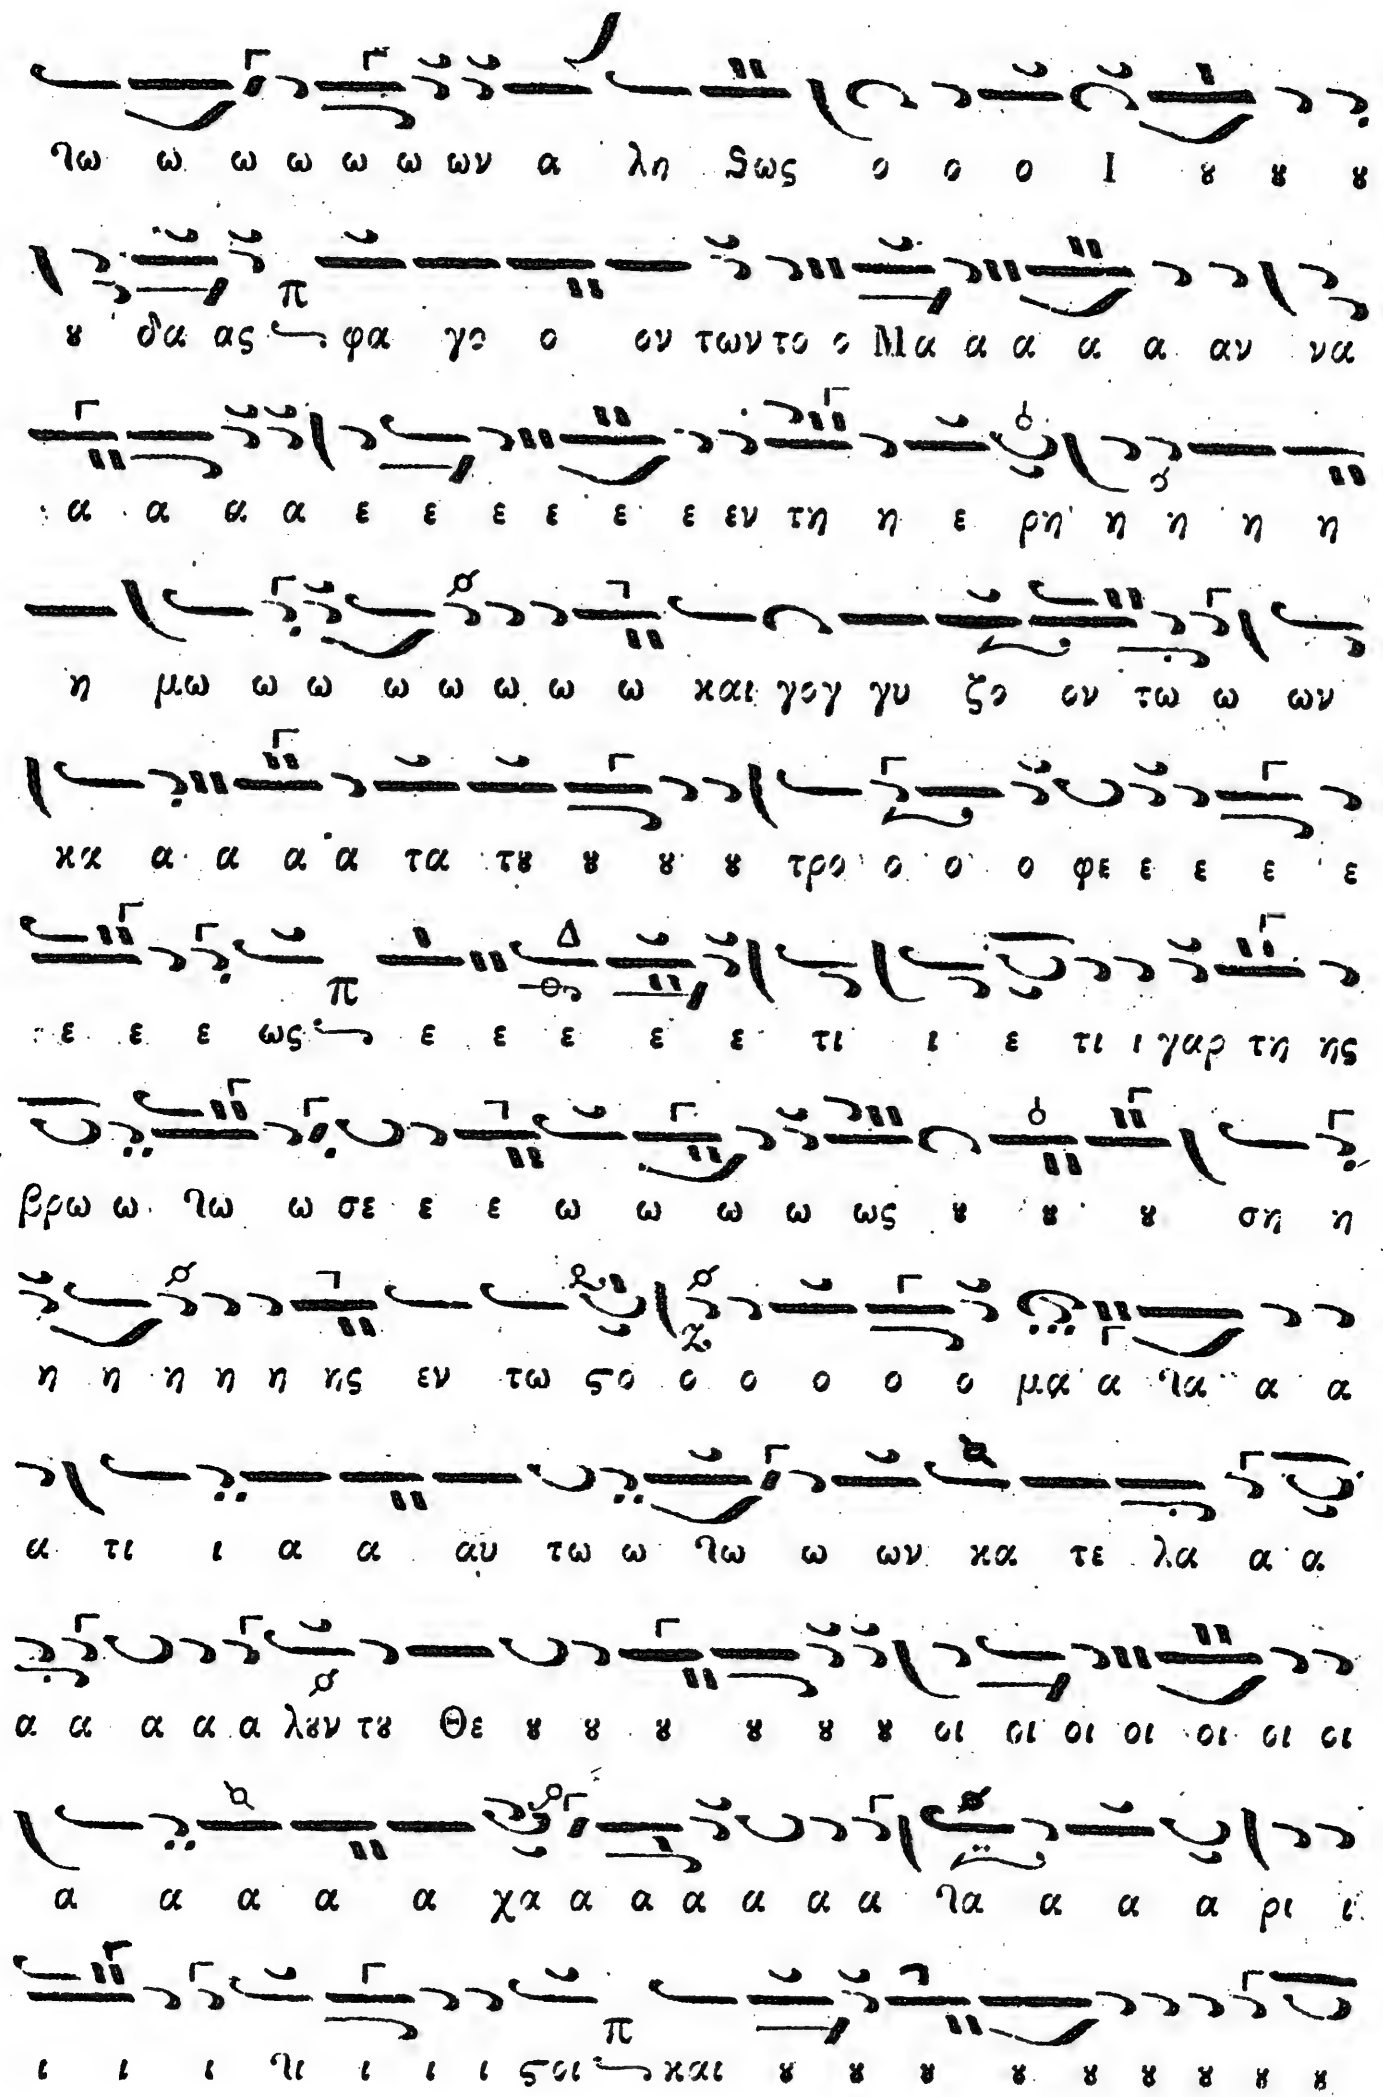 τω ω ω ω ω ω ων α λη θως ο ο ο Ι ȣ ȣ ȣ
ȣ δα ας φα γο ο ον των το ο Μα α α α α αν να
α α α α ε ε ε ε ε ε εν τη η ε ρη η η η η
η μω ω ω ω ω ω ω ω και γογ γυ ζο ον τω ω ων
κα α α α α τα τȣ ȣ ȣ ȣ τρο ο ο ο φε ε ε ε ε
ε ε ε ως ε ε ε ε ε τι ι ε τι ι γαρ τη ης
βρω ω τω ω σε ε ε ω ω ω ω ως ȣ ȣ ȣ ση η
η η η η η ης εν τω ϛο ο ο ο ο ο μα α τα α α
α τι ι α α αυ τω ω τω ω ων κα τε λα α α
α α α α α λȣν τȣ Θε ȣ ȣ ȣ ȣ ȣ ȣ οι οι οι οι οι οι οι
α α α α α χα α α α α α α τα α α α ρι ι
ι ι ι τι ι ι ι ϛοι και ȣ ȣ ȣ ȣ ȣ ȣ ȣ ȣ ȣ